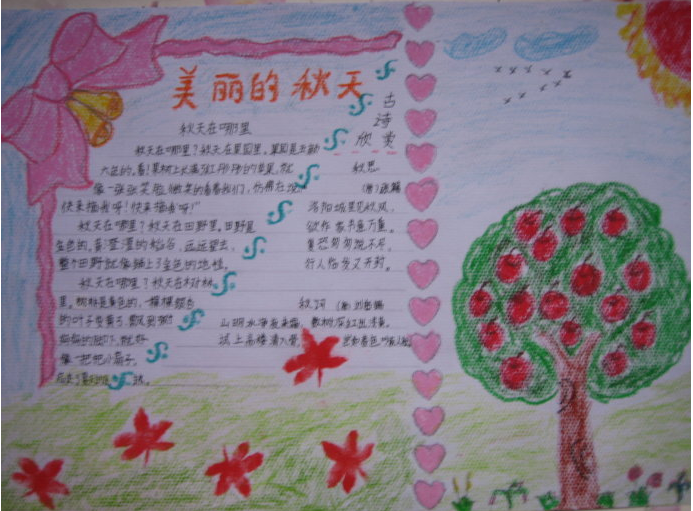 美丽的秋天
秋天在哪里
秋天在哪里？秋天在果园里，果园是
大色的，看！果树上长满
像一张张笑脸，微笑的看着我们，仿佛在说
快来摘我呀！快来摘我呀！”
秋天在哪里？秋天在田野里，田野是
金色的，黄澄澄的稻谷，远远望去，
整个田野就像铺上了金色的地毯。
秋天在哪里？秋天在树林
里，树林是黄色的，一棵棵
的叶子变黄了，飘到
的脚下，就好
像一把把小扇子，
古诗欣赏
秋思
（唐）张籍
洛阳城里见秋风，
欲作家书意万重。
复恐匆匆说不尽，
行人临发又开封。
秋词（唐）刘禹锡
山明水净夜来霜，数树深红出浅黄。
试上高楼清入骨，